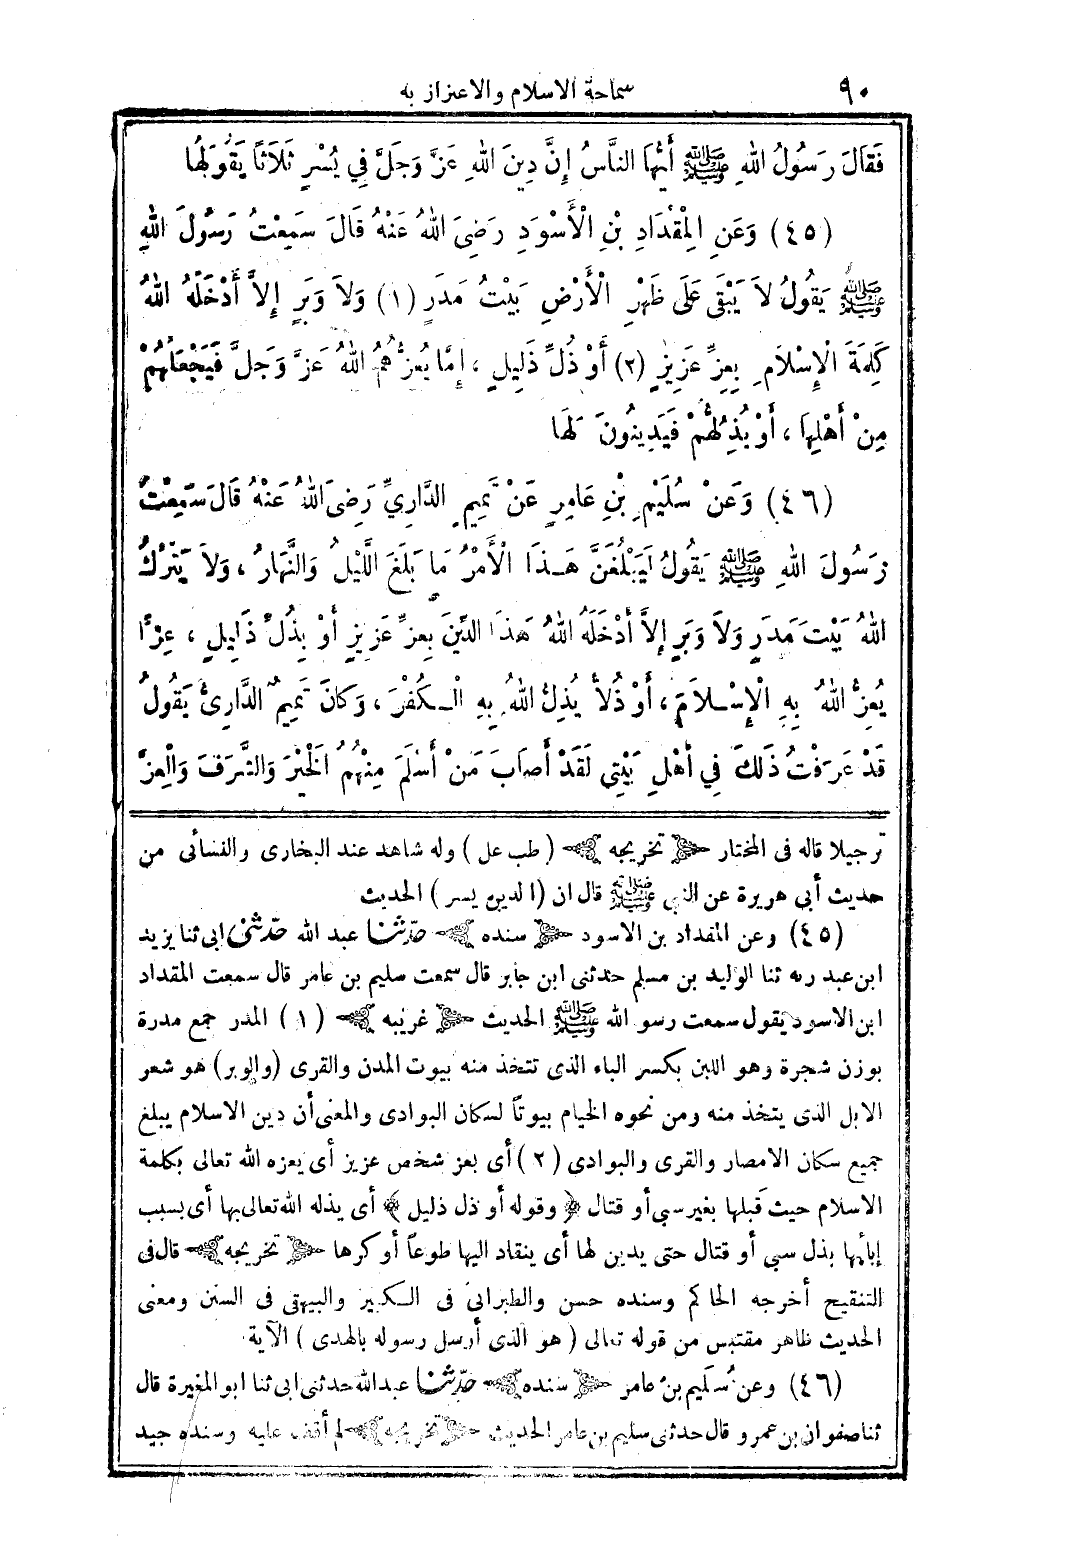 ٩٠ سماحة الاسلام والاعتزاز به
فَقَالَ رَسُولُ اللهِ ﷺ أَيُّهَا النَّاسُ إِنَّ دِينَ اللهِ عَزَّ وَجَلَّ فِي يُسْرٍ ثَلَاثًا يَقُولُهَا
(٤٥) وَعَنِ الْمِقْدَادِ بْنِ الْأَسْوَدِ رَضِىَ اللهُ عَنْهُ قَالَ سَمِعْتُ رَسُولَ اللهِ
ﷺ يَقُولُ لاَ يَبْقَى عَلَى ظَهْرِ الْأَرْضِ بَيْتُ مَدَرٍ (١) وَلاَ وَبَرٍ إِلاَّ أَدْخَلَهُ اللهُ
كَلِمَةَ الْإِسْلاَمِ بِعِزِّ عَزِيزٍ (٢) أَوْ ذُلِّ ذَلِيلٍ ، إِمَّا يُعِزُّهُمُ اللهُ عَزَّ وَجَلَّ فَيَجْعَلُهُمْ
مِنْ أَهْلِهَا ، أَوْ يُذِلُّهُمْ فَيَدِينُونَ لَهَا
(٤٦) وَعَنْ سُلَيْمِ بْنِ عَامِرٍ عَنْ تَمِيمٍ الدَّارِيِّ رَضِىَ اللهُ عَنْهُ قَالَ سَمِعْتُ
رَسُولَ اللهِ ﷺ يَقُولُ لَيَبْلُغَنَّ هَـذَا الْأَمْرُ مَا بَلَغَ اللَّيْلُ وَالنَّهَارُ ، وَلاَ يَتْرُكُ
اللهُ بَيْتَ مَدَرٍ وَلاَ وَبَرٍ إِلاَّ أَدْخَلَهُ اللهُ هَذَا الدِّينَ بِعِزِّ عَزِيزٍ أَوْ بِذُلِّ ذَلِيلٍ ، عِزًّا
يُعِزُّ اللهُ بِهِ الْإِسْـلاَمَ ، أَوْ ذُلاًّ يُذِلُّ اللهُ بِهِ الْـكُفْرَ ، وَكَانَ تَمِيمٌ الدَّارِىُّ يَقُولُ
قَدْ عَرَفْتُ ذَلِكَ فِي أَهْلِ بَيْتِي لَقَدْ أَصَابَ مَنْ أَسْلَمَ مِنْهُمُ الْخَيْرَ وَالشَّرَفَ وَالْعِزَّ
ترجيلا قاله فى المختار ﴿ تخريجه ﴾ ( طب عل ) وله شاهد عند البخارى والنسائى من
حديث أبى هريرة عن النبى ﷺ قال ان (الدين يسر ) الحديث
(٤٥) وعن المقداد بن الاسود ﴿ سنده ﴾ حدّثنا عبد الله حدّثنى ابى ثنا يزيد
ابن عبد ربه ثنا الوليد بن مسلم حدثنى ابن جابر قال سمعت سليم بن عامر قال سمعت المقداد
ابن الاسود يقول سمعت رسو الله ﷺ الحديث ﴿ غريبه ﴾ ( ١ ) المدر جمع مدرة
بوزن شجرة وهو اللبن بكسر الباء الذى تتخذ منه بيوت المدن والقرى (والوبر) هو شعر
الابل الذى يتخذ منه ومن نحوه الخيام بيوتًا لسكان البوادى والمعنى أن دين الاسلام يبلغ
جميع سكان الامصار والقرى والبوادى ( ٢ ) أى بعز شخص عزيز أى يعزه الله تعالى بكلمة
الاسلام حيث قبلها بغير سبى أو قتال ﴿ وقوله أو ذل ذليل ﴾ أى يذله الله تعالى بها أى بسبب
إبائها بذل سبى أو قتال حتى يدين لها أى ينقاد اليها طوعاً أو كرها ﴿ تخريجه ﴾ قال فى
التنقيح أخرجه الحاكم وسنده حسن والطبرانى فى الـكبير والبيهقى فى السنن ومعنى
الحديث ظاهر مقتبس من قوله تعالى ( هو الذى أرسل رسوله بالهدى ) الآية
(٤٦) وعن سُليم بن عامر ﴿ سنده ﴾ حدّثنا عبد الله حدثنى ابى ثنا ابو المغيرة قال
ثنا صفوان بن عمرو قال حدثنى سليم بن عامر الحديث ﴿ تخريجه ﴾ لم أقف عليه وسنده جيد